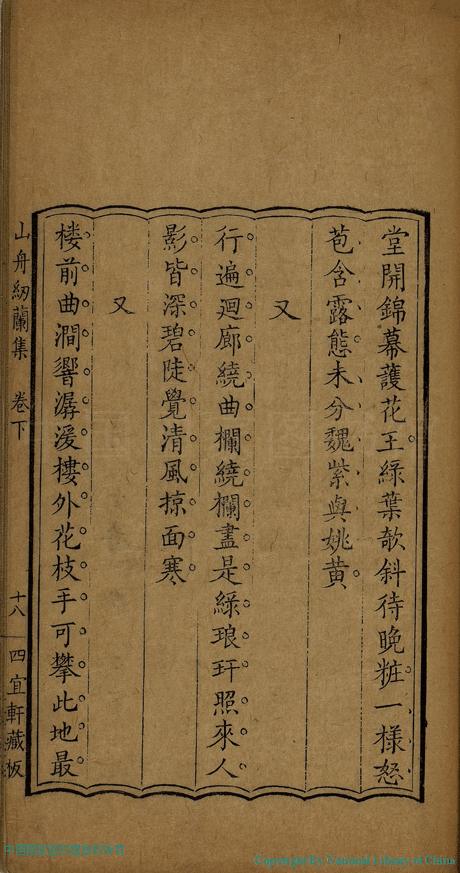 堂開錦幕護花王綠葉欹斜待晚粧一樣怒
苞含露態未分魏紫與姚黃
又
行遍迴廊繞曲欄繞欄盡是綠琅玕照來人
影皆深碧陡覺清風掠面寒
又
楼前曲澗響潺湲樓外花枝手可攀此地最
山舟紉蘭集 卷下 十八 四宜軒藏板
Copyright By National Library of China